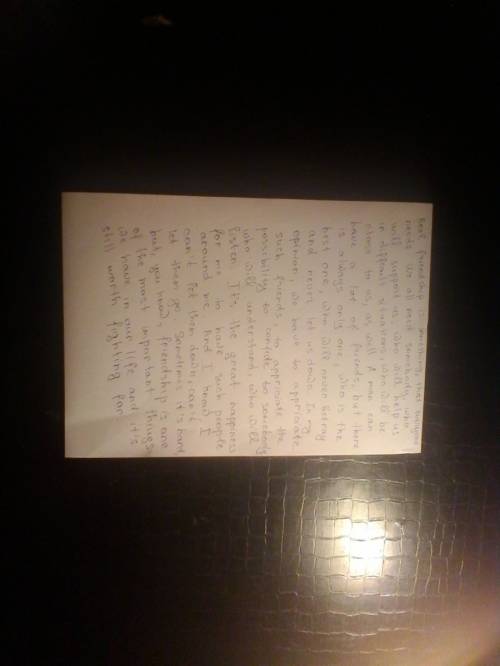 Real friendship is something, that everyone
needs. We all need somebody, who
will support us, who will help us
in difficult situations, who will be
close to us, as well. A man can
have a lot of friends, but there
is always only one, who is the
best one, who will never betray
and never let us down. In my
opinion we have to appriciate
such friends, to appriciate the
possibility to confide to somebody,
who will understand, who will
listen. It's the great happiness
for me to have such people
around me. And I know I
can't let them down, can't
let them go. Sometimes it's hard
but, you know, friendship is one
of the most important things,
we have in our life and it's
still worth fighting for.